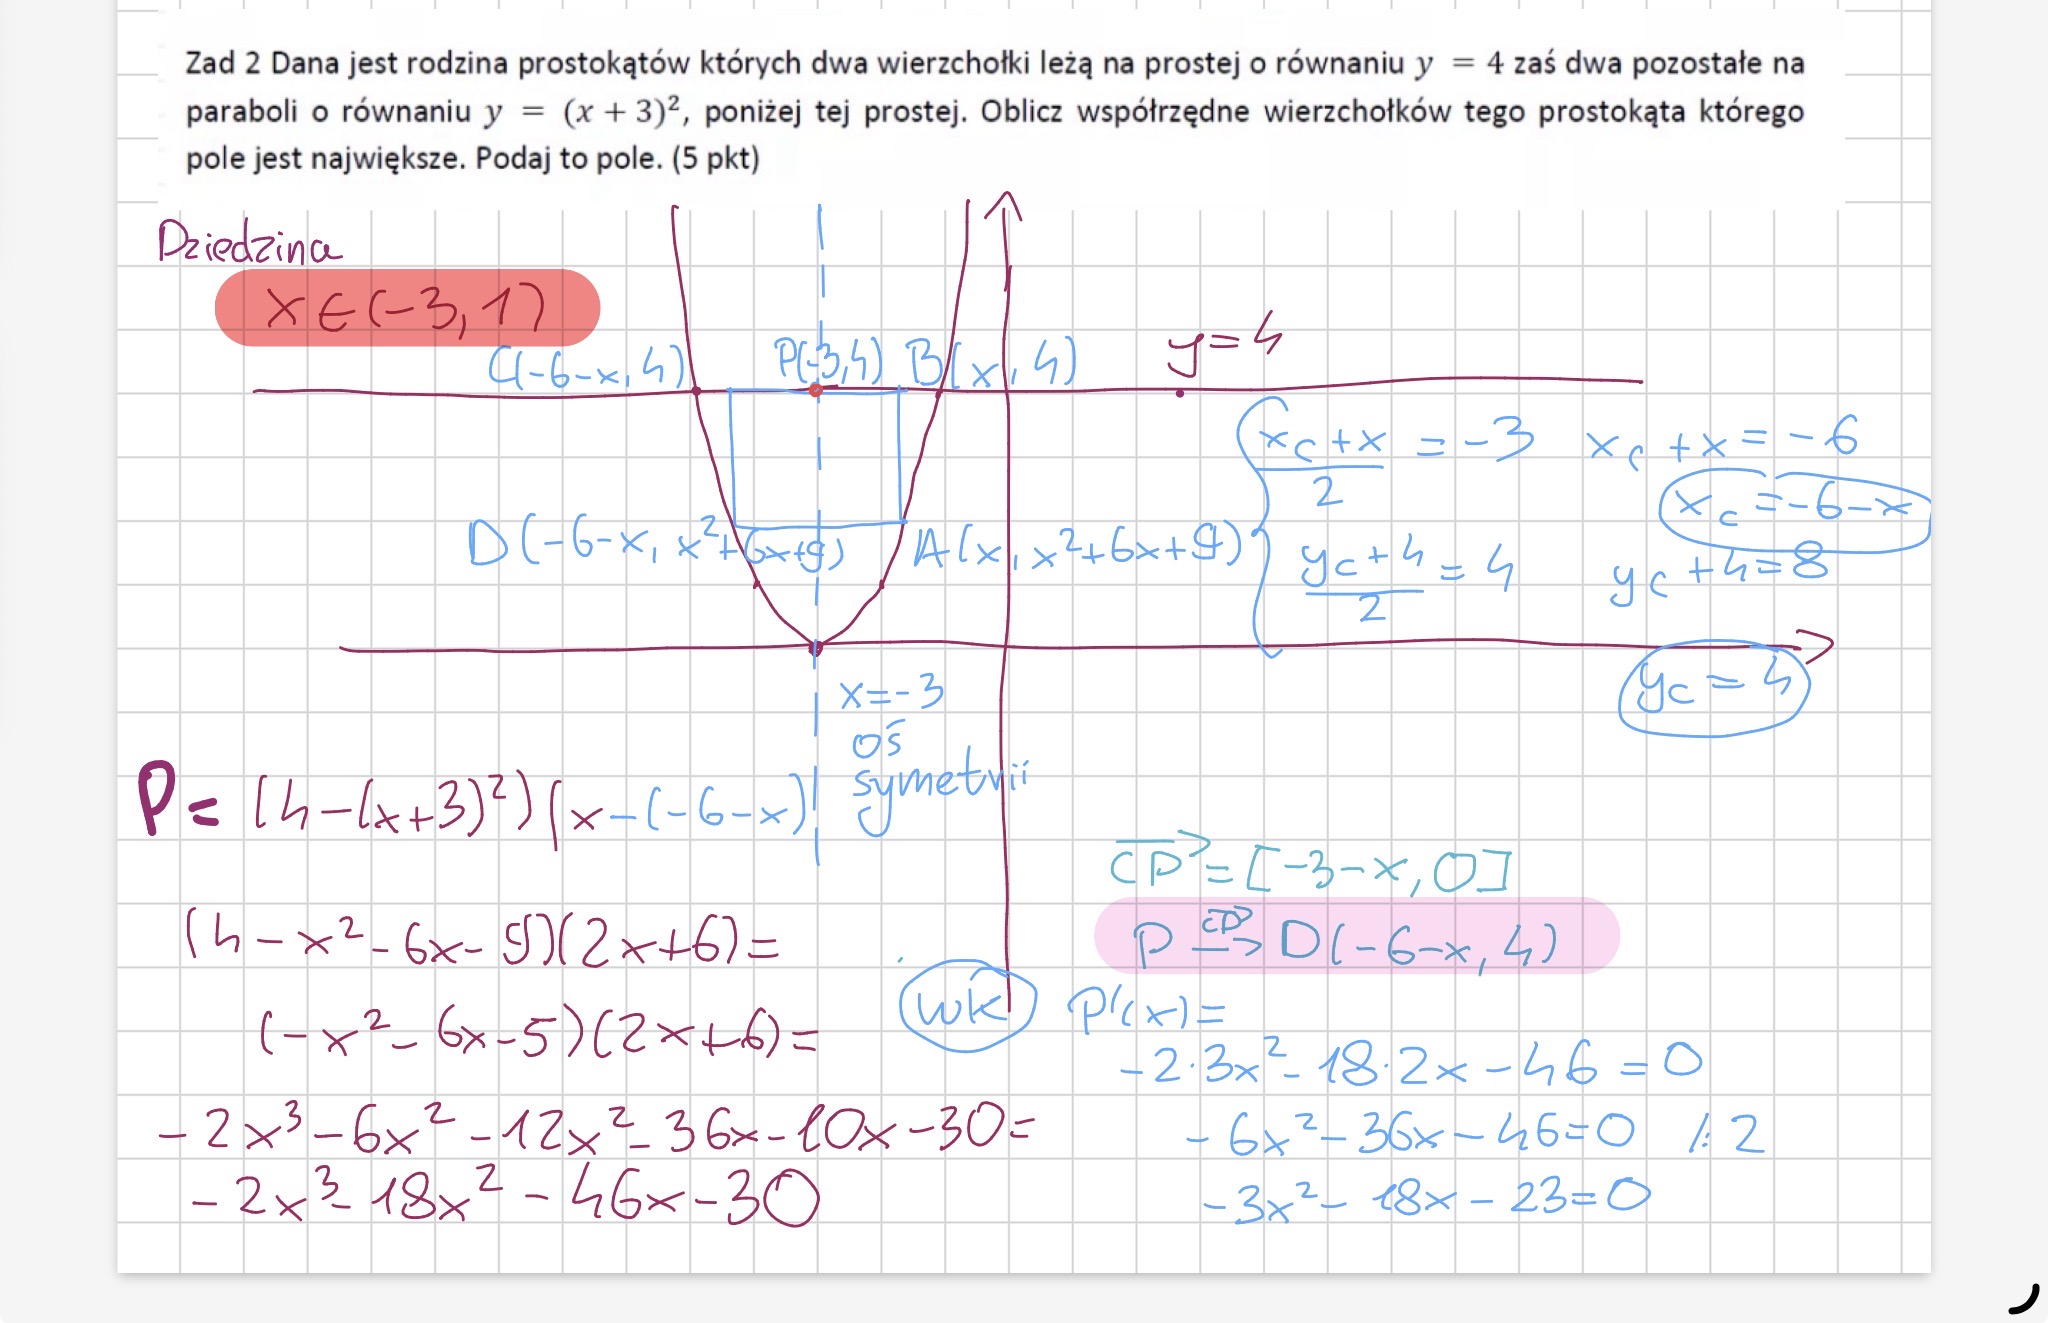 Zad 2 Dana jest rodzina prostokątów których dwa wierzchołki leżą na prostej o równaniu y = 4 zaś dwa pozostałe na
paraboli o równaniu y = (x + 3)², poniżej tej prostej. Oblicz współrzędne wierzchołków tego prostokąta którego
pole jest największe. Podaj to pole. (5 pkt)
Dziedzina
x ∈ (-3, 1)
C(-6-x, 4)
P(-3,4)
B(x, 4)
y=4
D(-6-x, x²+6x+9)
A(x, x²+6x+9)
(x_c + x)/2 = -3
x_c + x = -6
x_c = -6-x
(y_c + 4)/2 = 4
y_c + 4 = 8
y_c = 4
x=-3
oś
symetrii
P = (4-(x+3)²)(x-(-6-x)
(4-x²-6x-9)(2x+6)=
(-x²-6x-5)(2x+6)=
-2x³-6x²-12x²-36x-10x-30=
-2x³-18x²-46x-30
CP→ = [-3-x, 0]
P CP→ D(-6-x, 4)
wk
P'(x)=
-2·3x²-18·2x-46=0
-6x²-36x-46=0 /:2
-3x²-18x-23=0